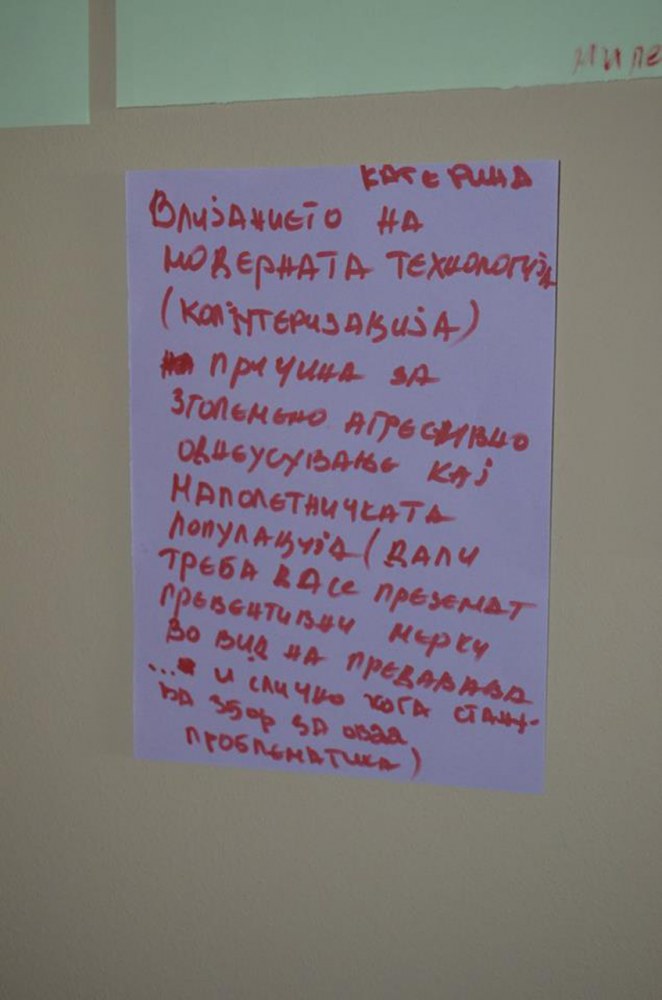 миле
КАТЕРИНА
Влијанието на
модерната технологија
(компјутеризација)
причина за
зголемено агресивно
однесување кај
малолетничката
популација (дали
треба да се преземат
превентивни мерки
во вид на предавања
... и слично кога стану-
ва збор за оваа
проблематика)